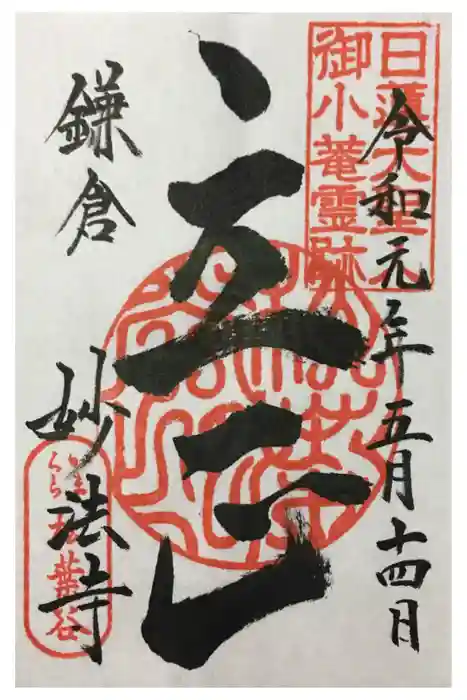 日蓮大聖
御小菴霊跡
令和元年五月十四日
立正
鎌倉
妙法寺
松葉谷